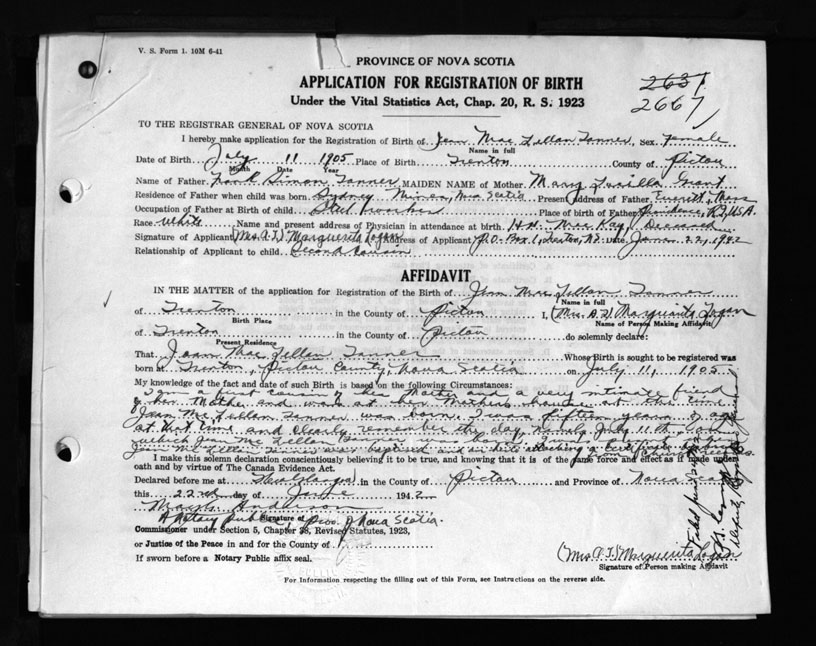 V. S. Form 1. 10M 6-41
PROVINCE OF NOVA SCOTIA
APPLICATION FOR REGISTRATION OF BIRTH
Under the Vital Statistics Act, Chap. 20, R. S. 1923
2631
2667
TO THE REGISTRAR GENERAL OF NOVA SCOTIA
I hereby make application for the Registration of Birth of Jean Mac Lellan Tanner, Sex Female
Name in full
Date of Birth July 11 1905 Place of Birth Trenton County of Pictou
Month Date Year
Name of Father Frank Simon Tanner MAIDEN NAME of Mother Mary Grant
Residence of Father when child was born Sydney Mines, Nova Scotia Present address of Father Everett, Mass
Occupation of Father at Birth of child Steel worker Place of Birth of Father Providence, R.I, U.S.A.
Race White Name and present address of Physician in attendance at birth H.H. MacKay, Deceased
Signature of Applicant (Mrs A.T.) Marguerita Logan Address of Applicant P.O. Box 1, Trenton, N.S. Date June 22, 1942
Relationship of Applicant to child Second cousin
AFFIDAVIT
IN THE MATTER of the application for Registration of the Birth of Jean Mac Lellan Tanner
Name in full
of Trenton in the County of Pictou I, (Mrs A.T.) Marguerita Logan
Birth Place Name of Person Making Affidavit
of Trenton in the County of Pictou do solemnly declare:
Present Residence
That Jean Mac Lellan Tanner Whose Birth is sought to be registered was
born at Trenton, Pictou County, Nova Scotia on July 11, 1905
My knowledge of the fact and date of such Birth is based on the following Circumstances:
I am a first cousin of her Mother and a very intimate friend
of her Mother and was at her Mothers house at the time
Jean Mc Lellan Tanner was born. I was fifteen years of age
at that time and clearly remember the day, namely July 11th
which Jean Mc Lellan Tanner was born.
Jean Mc Lellan Tanner was baptised and
I make this solemn declaration conscientiously believing it to be true, and knowing that it is of the same force and effect as if made under
oath and by virtue of The Canada Evidence Act.
Declared before me at in the County of Pictou and Province of Nova Scotia
this 22nd day of June 1942
A Notary Public, Prov. of Nova Scotia.
Commissioner under Section 5, Chapter 38, Revised Statutes, 1923,
or Justice of the Peace in and for the County of
If sworn before a Notary Public affix seal.
(Mrs A.T.) Marguerita Logan
Signature of Person making Affidavit
For Information respecting the filling out of this Form, see Instructions on the reverse side.